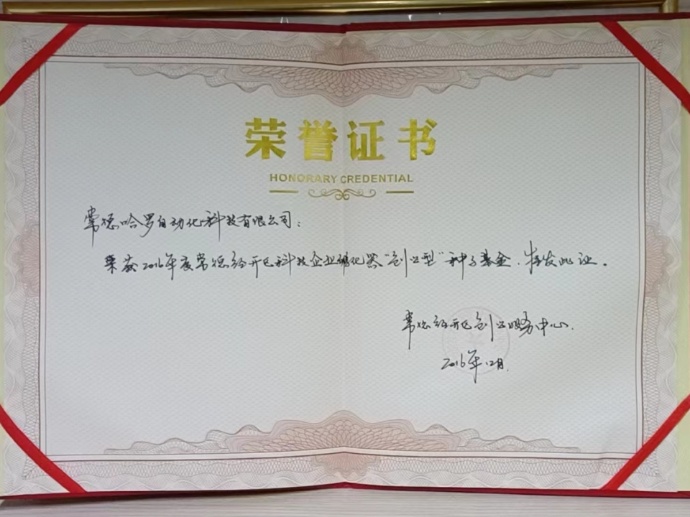 荣誉证书
HONORARY CREDENTIAL
常德哈罗自动化科技有限公司：
荣获2016年度常德经开区科技企业孵化器“创业型”种子基金，特发此证。
常德经开区创业服务中心
2016年12月